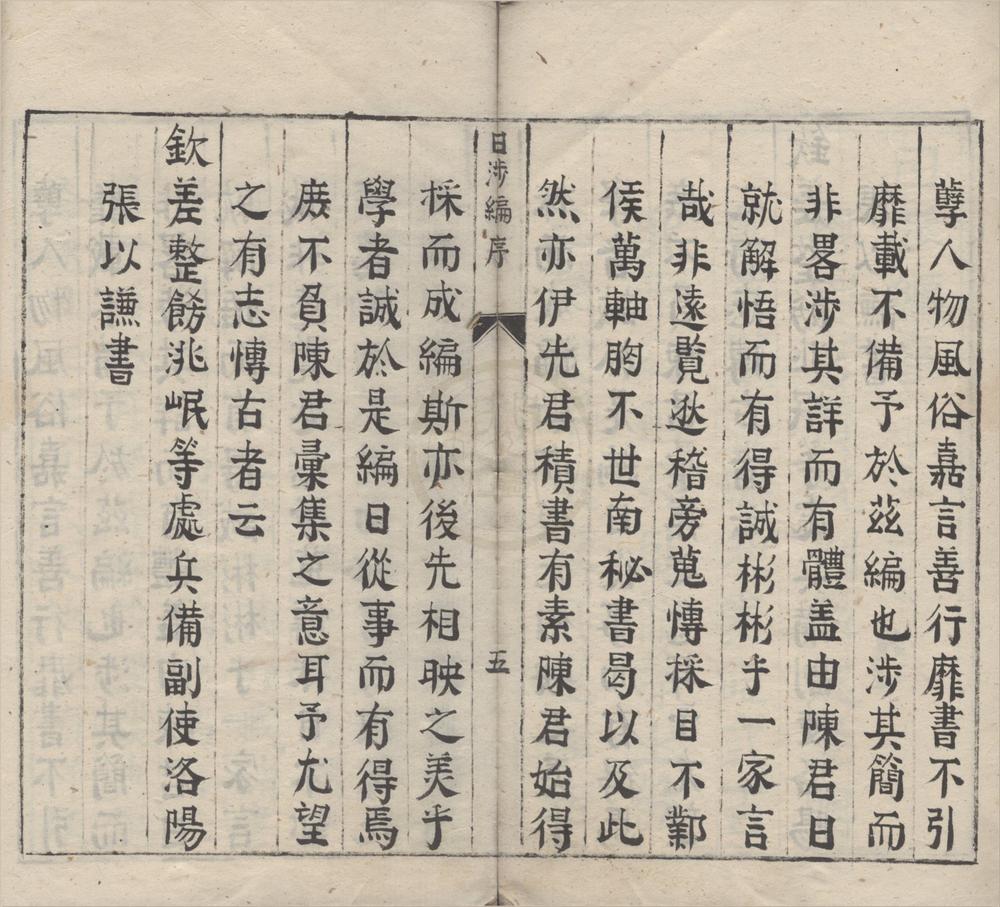 孽人物風俗嘉言善行靡書不引
靡載不備予於茲編也涉其簡而
非畧涉其詳而有體盖由陳君日
就解悟而有得誠彬彬乎一家言
哉非遠覽逖稽旁蒐慱採目不鄴
侯萬軸胷不世南秘書曷以及此
然亦伊先君積書有素陳君始得
日涉編序
五
採而成編斯亦後先相映之美乎
學者誠於是編日從事而有得焉
庻不負陳君彙集之意耳予尤望
之有志慱古者云
欽差整飭洮岷等處兵備副使洛陽
張以謙書